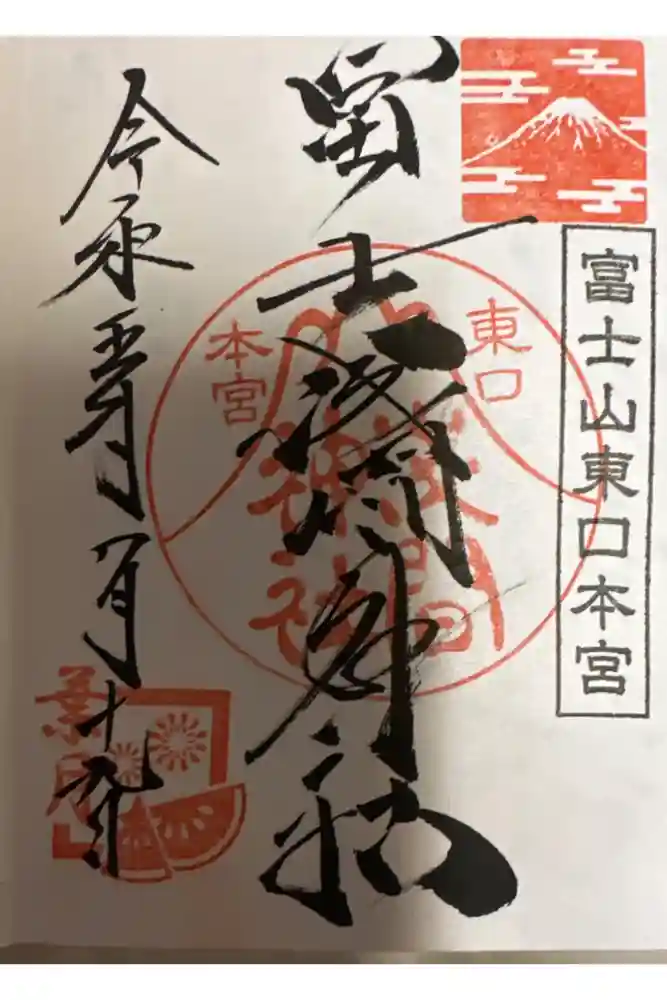 富士山東口本宮
冨士浅間神社
東口
本宮
浅間
神社
令和五年八月十九日
葉月